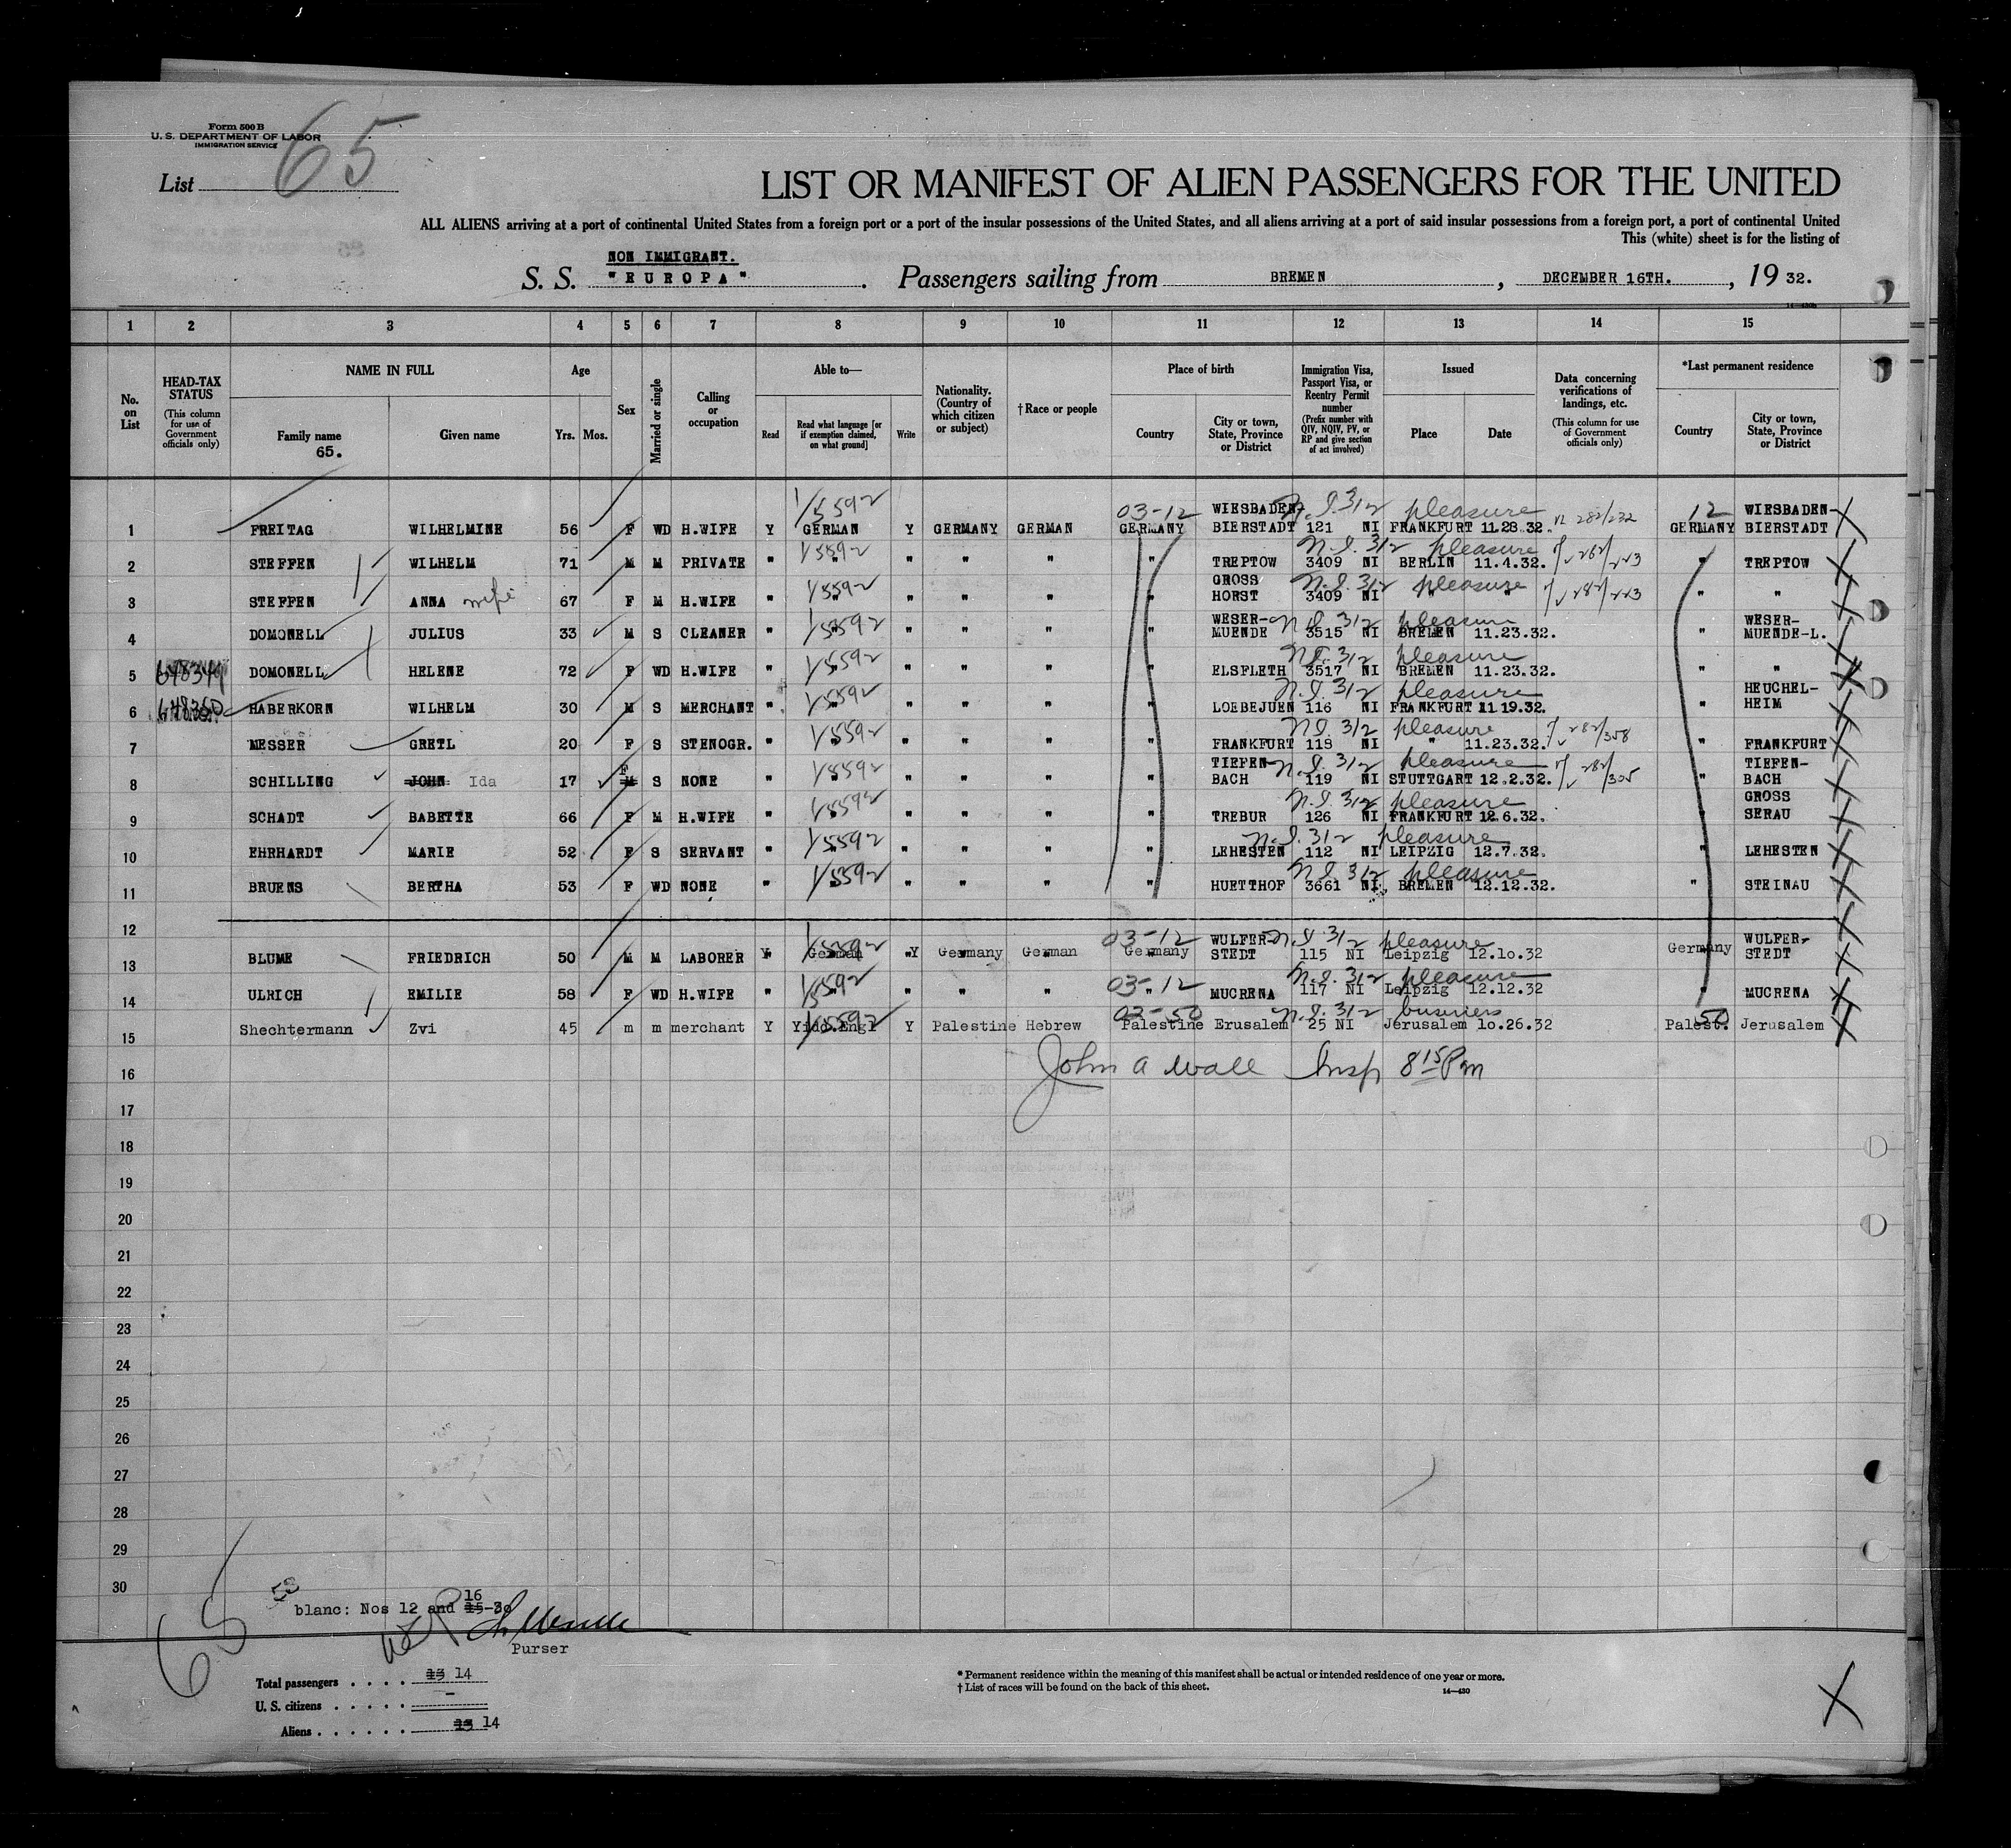 Form 500 B
U. S. DEPARTMENT OF LABOR
IMMIGRATION SERVICE
List 65
LIST OR MANIFEST OF ALIEN PASSENGERS FOR THE UNITED
ALL ALIENS arriving at a port of continental United States from a foreign port or a port of the insular possessions of the United States, and all aliens arriving at a port of said insular possessions from a foreign port, a port of continental United
This (white) sheet is for the listing of
NON IMMIGRANT.
S. S. "EUROPA". Passengers sailing from BREMEN, DECEMBER 16TH., 19 32.
1 2 3 4 5 6 7 8 9 10 11 12 13 14 15
No. on List
HEAD-TAX STATUS (This column for use of Government officials only)
NAME IN FULL
Family name 65.
Given name
Age
Yrs. Mos.
Sex
Married or single
Calling or occupation
Able to—
Read
Read what language [or if exemption claimed, on what ground]
Write
Nationality. (Country of which citizen or subject)
†Race or people
Place of birth
Country
City or town, State, Province or District
Immigration Visa, Passport Visa, or Reentry Permit number (Prefix number with QIV, NQIV, PV, or RP and give section of act involved)
Issued
Place
Date
Data concerning verifications of landings, etc. (This column for use of Government officials only)
*Last permanent residence
Country
City or town, State, Province or District
1 FREITAG WILHELMINE 56 F WD H.WIFE Y GERMAN Y GERMANY GERMAN 03-12 GERMANY WIESBADEN- BIERSTADT 121 NI N.I. 312 pleasure FRANKFURT 11.28.32. 282/232 12 GERMANY WIESBADEN- BIERSTADT
2 STEFFEN WILHELM 71 M M PRIVATE " " " " " " TREPTOW 3409 NI N.I. 312 pleasure BERLIN 11.4.32. " TREPTOW
3 STEFFEN ANNA wife 67 F M H.WIFE " " " " " " GROSS HORST 3409 NI N.I. 312 pleasure " " " "
4 DOMONELL JULIUS 33 M S CLEANER " " " " " " WESER- MUENDE 3515 NI N.I. 312 pleasure BREMEN 11.23.32. " WESER- MUENDE-L.
5 648349 DOMONELL HELENE 72 F WD H.WIFE " " " " " " ELSFLETH 3517 NI N.I. 312 pleasure BREMEN 11.23.32. " "
6 648350 HABERKORN WILHELM 30 M S MERCHANT " " " " " " LOEBEJUEN 116 NI N.I. 312 pleasure FRANKFURT 11 19.32. " HEUCHEL- HEIM
7 MESSER GRETL 20 F S STENOGR. " " " " " " FRANKFURT 118 NI N.I. 312 pleasure " 11.23.32. 282/308 " FRANKFURT
8 SCHILLING JOHN Ida 17 M F S NONE " " " " " " TIEFEN- BACH 119 NI N.I. 312 pleasure STUTTGART 12.2.32. 282/305 " TIEFEN- BACH
9 SCHADT BABETTE 66 F M H.WIFE " " " " " " TREBUR 126 NI N.I. 312 pleasure FRANKFURT 12.6.32. " GROSS GERAU
10 EHRHARDT MARIE 52 F S SERVANT " " " " " " LEHESTEN 112 NI N.I. 312 pleasure LEIPZIG 12.7.32. " LEHESTEN
11 BRUENS BERTHA 53 F WD NONE " " " " " " HUETTHOF 3661 NI N.I. 312 pleasure BREMEN 12.12.32. " STEINAU
12
13 BLUME FRIEDRICH 50 M M LABORER Y German Y Germany German 03-12 Germany WULFER- STEDT 115 NI N.I. 312 pleasure Leipzig 12.10.32 Germany WULFER- STEDT
14 ULRICH EMILIE 58 F WD H.WIFE " " " " " 03-12 " MUCRENA 117 NI N.I. 312 pleasure Leipzig 12.12.32 " MUCRENA
15 Shechtermann Zvi 45 m m merchant Y Yidd.Engl Y Palestine Hebrew 03-50 Palestine Erusalem 25 NI N.I. 312 business Jerusalem 10.26.32 50 Palest. Jerusalem
John A Wall Insp 8 15 Pm
16
17
18
19
20
21
22
23
24
25
26
27
28
29
30
65
blanc: Nos 12 and 15 16-30
Purser
Total passengers . . . . 13 14
U. S. citizens . . . . . –
Aliens . . . . . . 13 14
* Permanent residence within the meaning of this manifest shall be actual or intended residence of one year or more.
† List of races will be found on the back of this sheet.
14—430